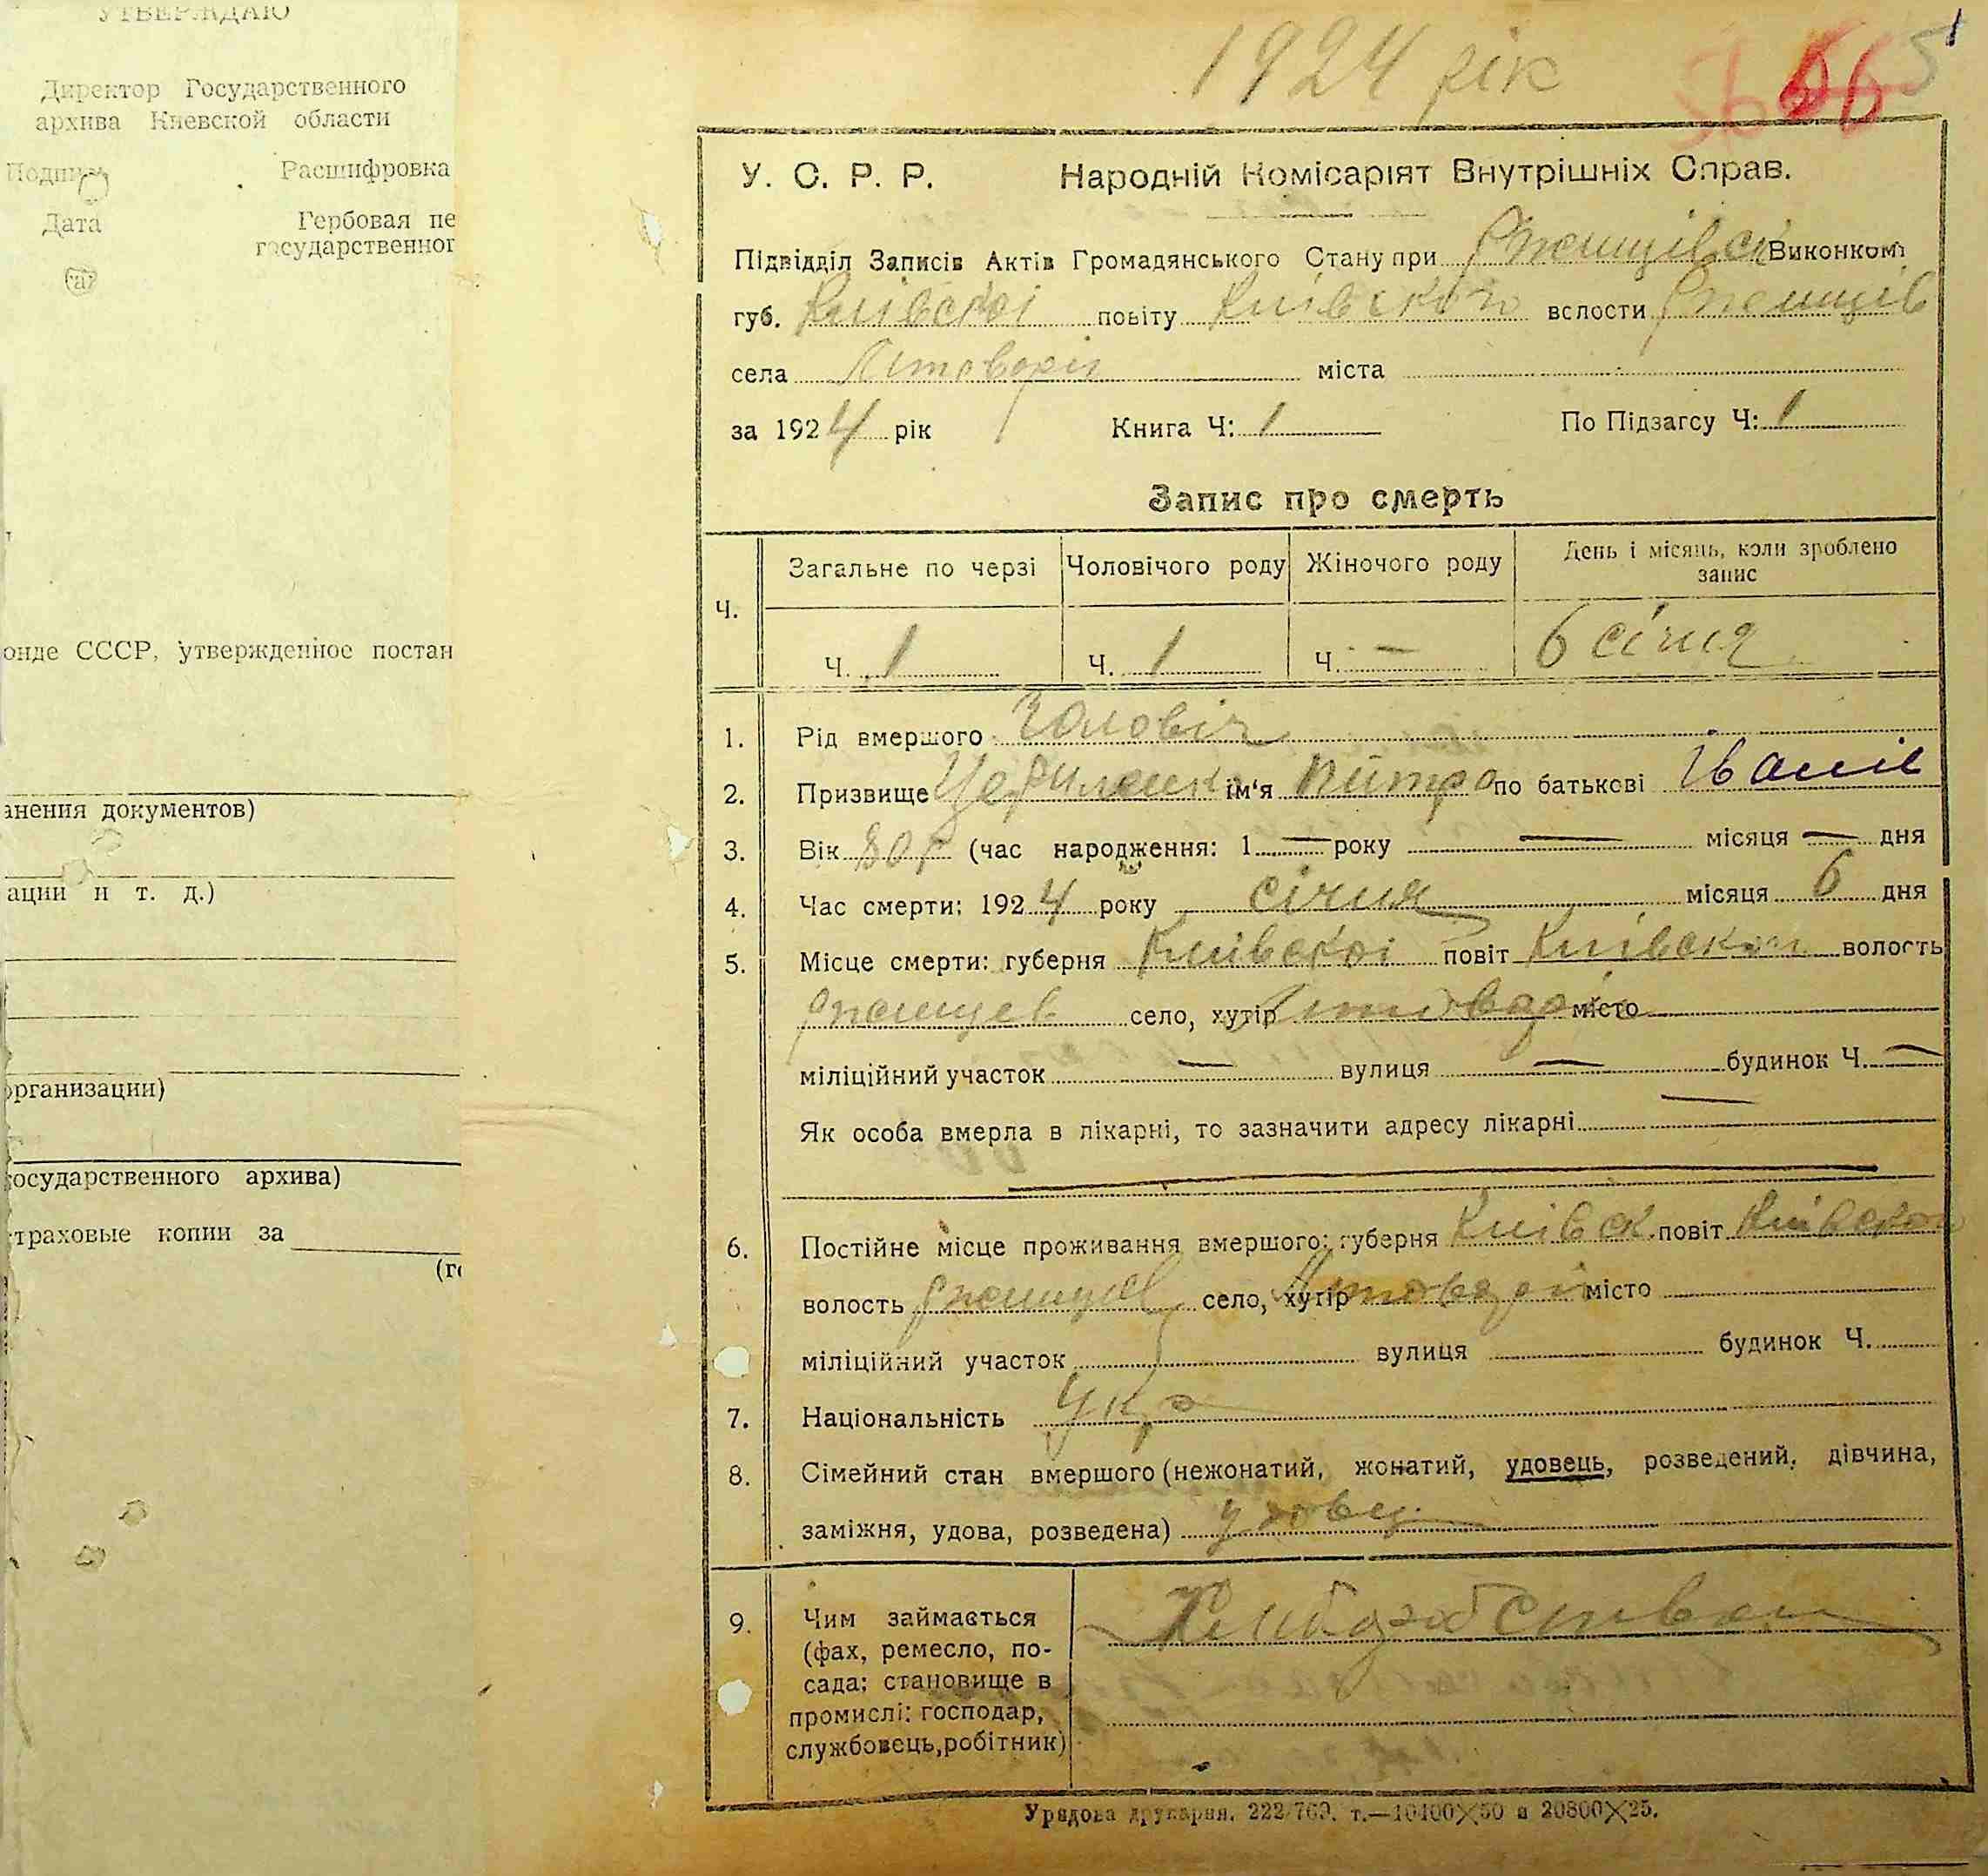 УТВЕРЖДАЮ
Директор Государственного
архива Киевской области
Расшифровка
Дата
Гербовая пе
государственног
онде СССР, утвержденное постан
анения документов)
ации и т. д.)
организации)
государственного архива)
траховые копии за
(го
1924 рік
У. С. Р. Р. Народній Комісаріят Внутрішніх Справ.
Підвідділ Записів Актів Громадянського Стану при Ржищівськ Виконкомі
губ. Київскоі повіту Київского волости Ржищів
села міста
за 1924 рік Книга Ч: 1 По Підзагсу Ч: 1
Запис про смерть
Ч.
Загальне по черзі Чоловічого роду Жіночого роду День і місяць, коли зроблено запис
Ч. 1 Ч. 1 Ч. — 6 січня
1. Рід вмершого Чоловіч
2. Призвище ім'я по батькові Іванів
3. Вік 80 р (час народження: 1 — року — місяця — дня
4. Час смерти: 1924 року січня місяця 6 дня
5. Місце смерти: губерня Київскоі повіт Київског волость
Ржищев село, хутір місто
міліційний участок — вулиця — будинок Ч. —
Як особа вмерла в лікарні, то зазначити адресу лікарні —
6. Постійне місце проживання вмершого: губерня Київск. повіт Київског
волость Ржищев село, хутір місто
міліційний участок вулиця будинок Ч.
7. Національність Укр
8. Сімейний стан вмершого (нежонатий, жонатий, удовець, розведений, дівчина,
заміжня, удова, розведена) удовец
9. Чим займається
(фах, ремесло, по-
сада; становище в
промислі: господар,
службовець, робітник)
Урядова друкарня. 222/769. т.—10400×50 и 20800×25.